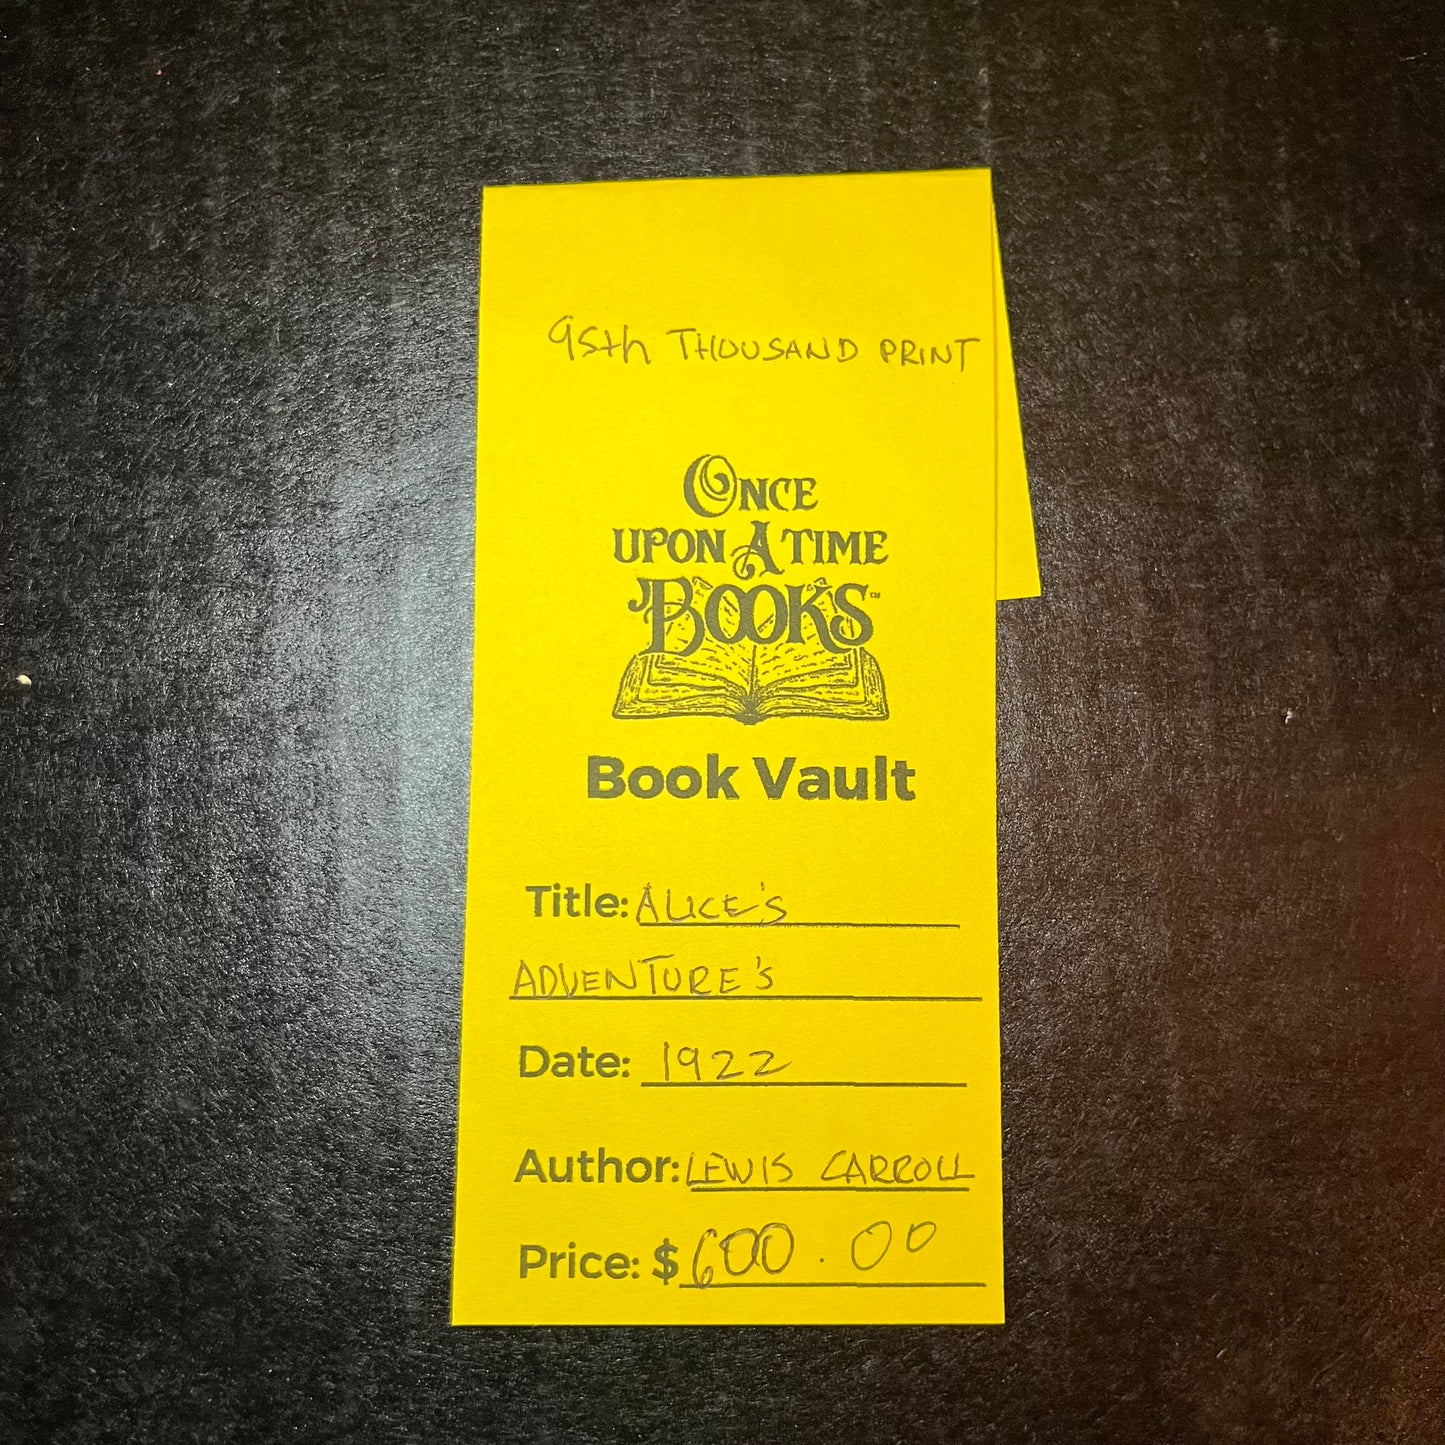 95th THOUSAND PRINT
ONCE
UPON A TIME
BOOKS™
Book Vault
Title: ALICE'S
ADVENTURE'S
Date: 1922
Author: LEWIS CARROLL
Price: $600.00